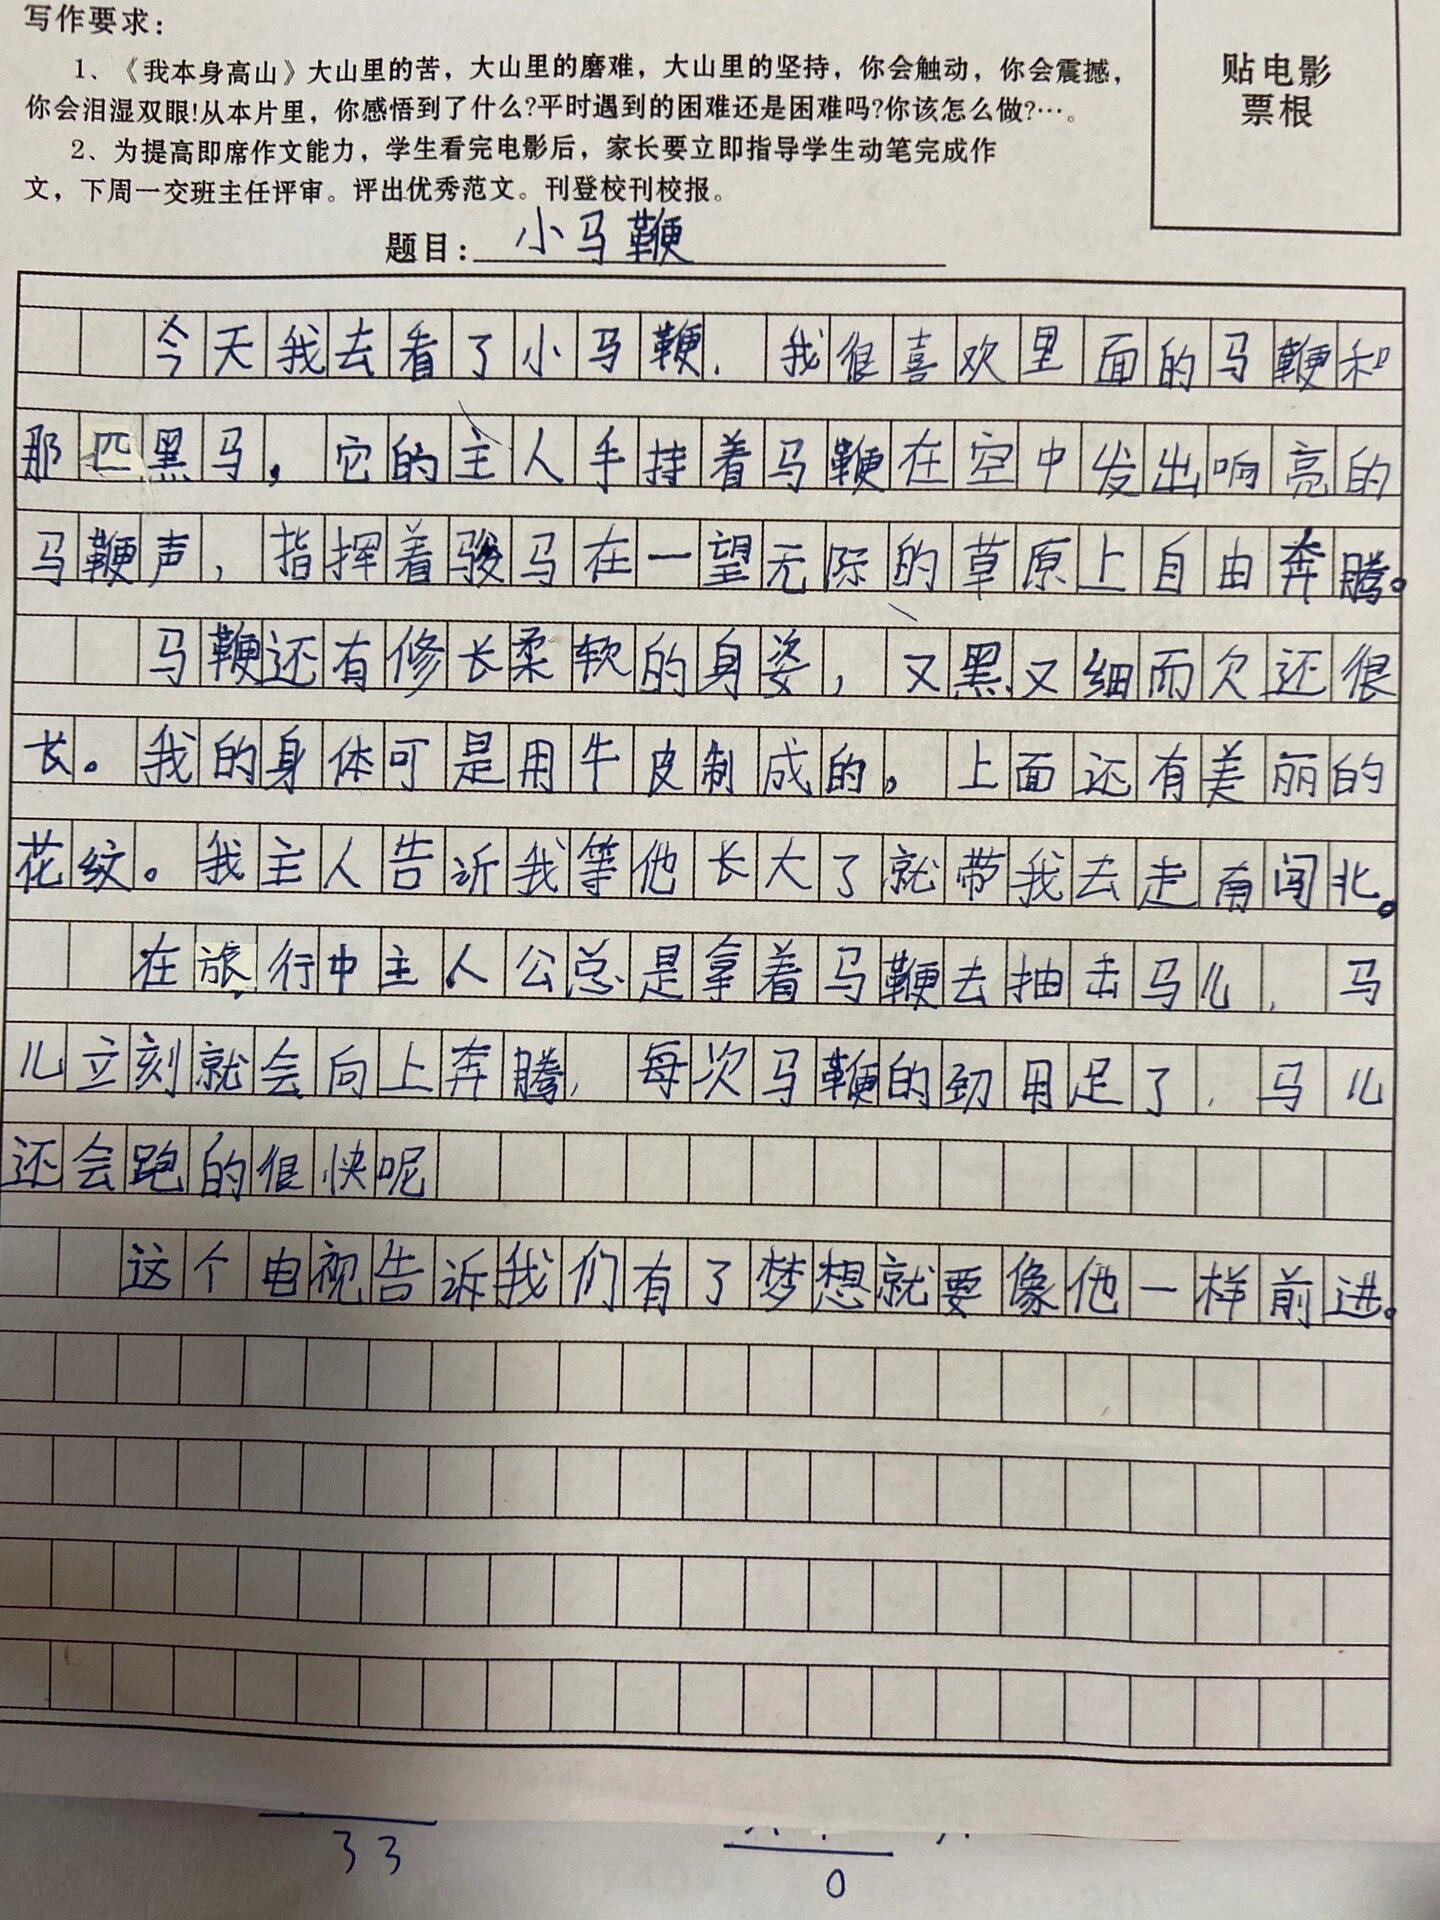 写作要求：
1、《我本身高山》大山里的苦，大山里的磨难，大山里的坚持，你会触动，你会震撼，
你会泪湿双眼！从本片里，你感悟到了什么？平时遇到的困难还是困难吗？你该怎么做？…。
2、为提高即席作文能力，学生看完电影后，家长要立即指导学生动笔完成作
文，下周一交班主任评审。评出优秀范文。刊登校刊校报。
贴电影
票根
题目：小马鞭
今天我去看了小马鞭．我很喜欢里面的马鞭和
那匹黑马，它的主人手持着马鞭在空中发出响亮的
马鞭声，指挥着骏马在一望无际的草原上自由奔腾。
马鞭还有修长柔软的身姿，又黑又细而欠还很
长。我的身体可是用牛皮制成的，上面还有美丽的
花纹。我主人告诉我等他长大了就带我去走南闯北。
在旅行中主人公总是拿着马鞭去抽击马儿，马
儿立刻就会向上奔腾，每次马鞭的劲用足了，马儿
还会跑的很快呢
这个电视告诉我们有了梦想就要像他一样前进。
33
0